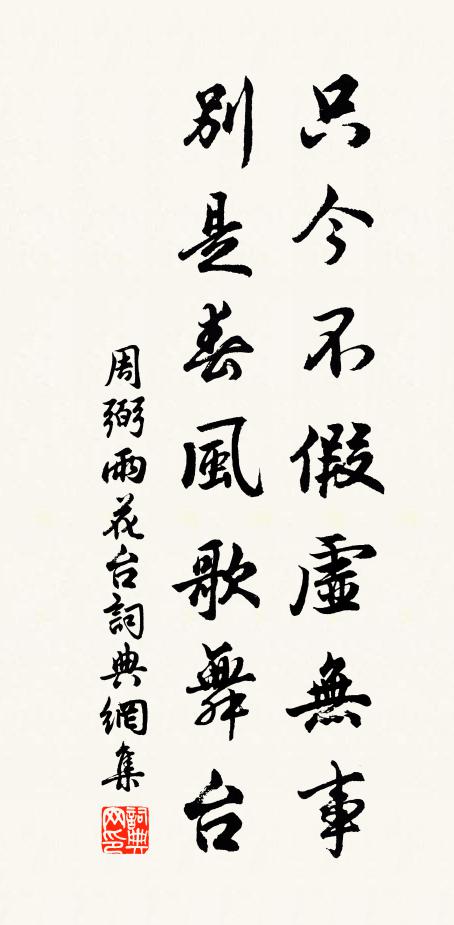 只今不假虛無事
別是春風歌舞台
周弼雨花台詞典網集
詞典网印